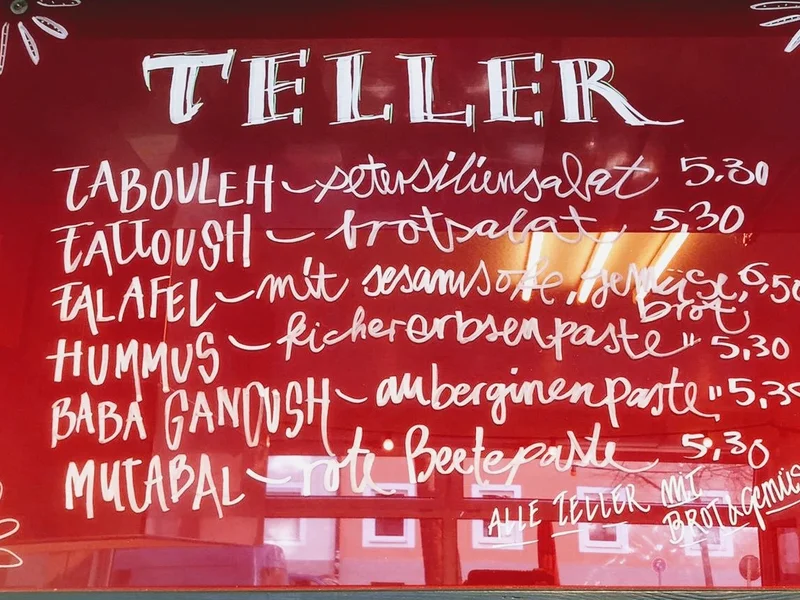 TELLER
TABOULEH - petersiliensalat 5,30
FATTOUSH - brotsalat 5,30
FALAFEL - mit sesamsoße, gemüse, brot 6,50
HUMMUS - kichererbsenpaste " 5,30
BABA GANOUSH - auberginenpaste " 5,30
MUTABAL - rote Beetepaste 5,30
ALLE TELLER MIT
BROT & gemüs